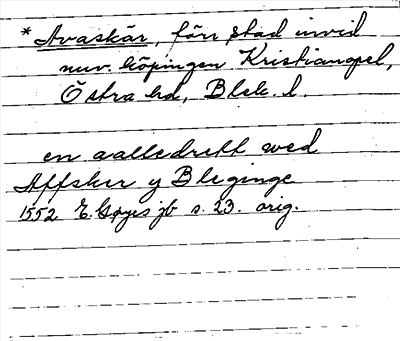 *Avaskär, förr stad invid
nuv. köpingen Kristianopel,
Östra hd, Blek. l.
en aalledrett wed
Affsker y Bleginge
1552 E. Gøyes jb s. 23. orig.